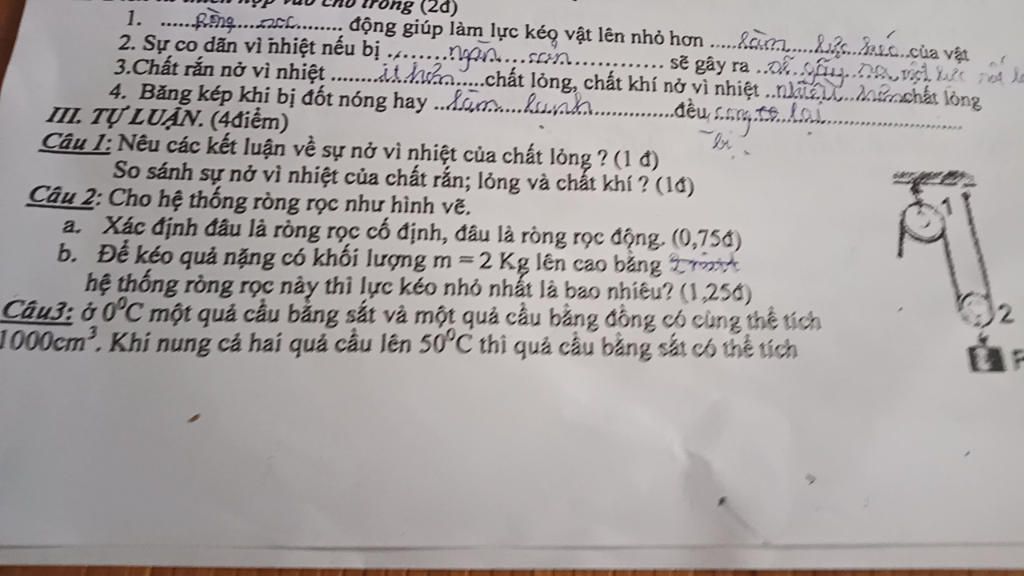 vào chỗ trống (2đ)
1. ......Ròng...rọc......... động giúp làm lực kéo vật lên nhỏ hơn .....của vật
2. Sự co dãn vì nhiệt nếu bị .......ngăn....cản............... sẽ gây ra ..
3.Chất rắn nở vì nhiệt .........ít hơn......chất lỏng, chất khí nở vì nhiệt ..nhiều...hơn.chất lỏng
4. Băng kép khi bị đốt nóng hay ..làm....lạnh..............đều, cong lại.....................
bị
III. TỰ LUẬN. (4điểm)
Câu 1: Nêu các kết luận về sự nở vì nhiệt của chất lỏng ? (1 đ)
So sánh sự nở vì nhiệt của chất rắn; lỏng và chất khí ? (1đ)
Câu 2: Cho hệ thống ròng rọc như hình vẽ.
a. Xác định đâu là ròng rọc cố định, đâu là ròng rọc động. (0,75đ)
b. Để kéo quả nặng có khối lượng m = 2 Kg lên cao bằng
hệ thống ròng rọc này thì lực kéo nhỏ nhất là bao nhiêu? (1,25đ)
Câu3: ở 0⁰C một quả cầu bằng sắt và một quả cầu bằng đồng có cùng thể tích
1000cm³. Khi nung cả hai quả cầu lên 50⁰C thì quả cầu bằng sắt có thể tích
1
2